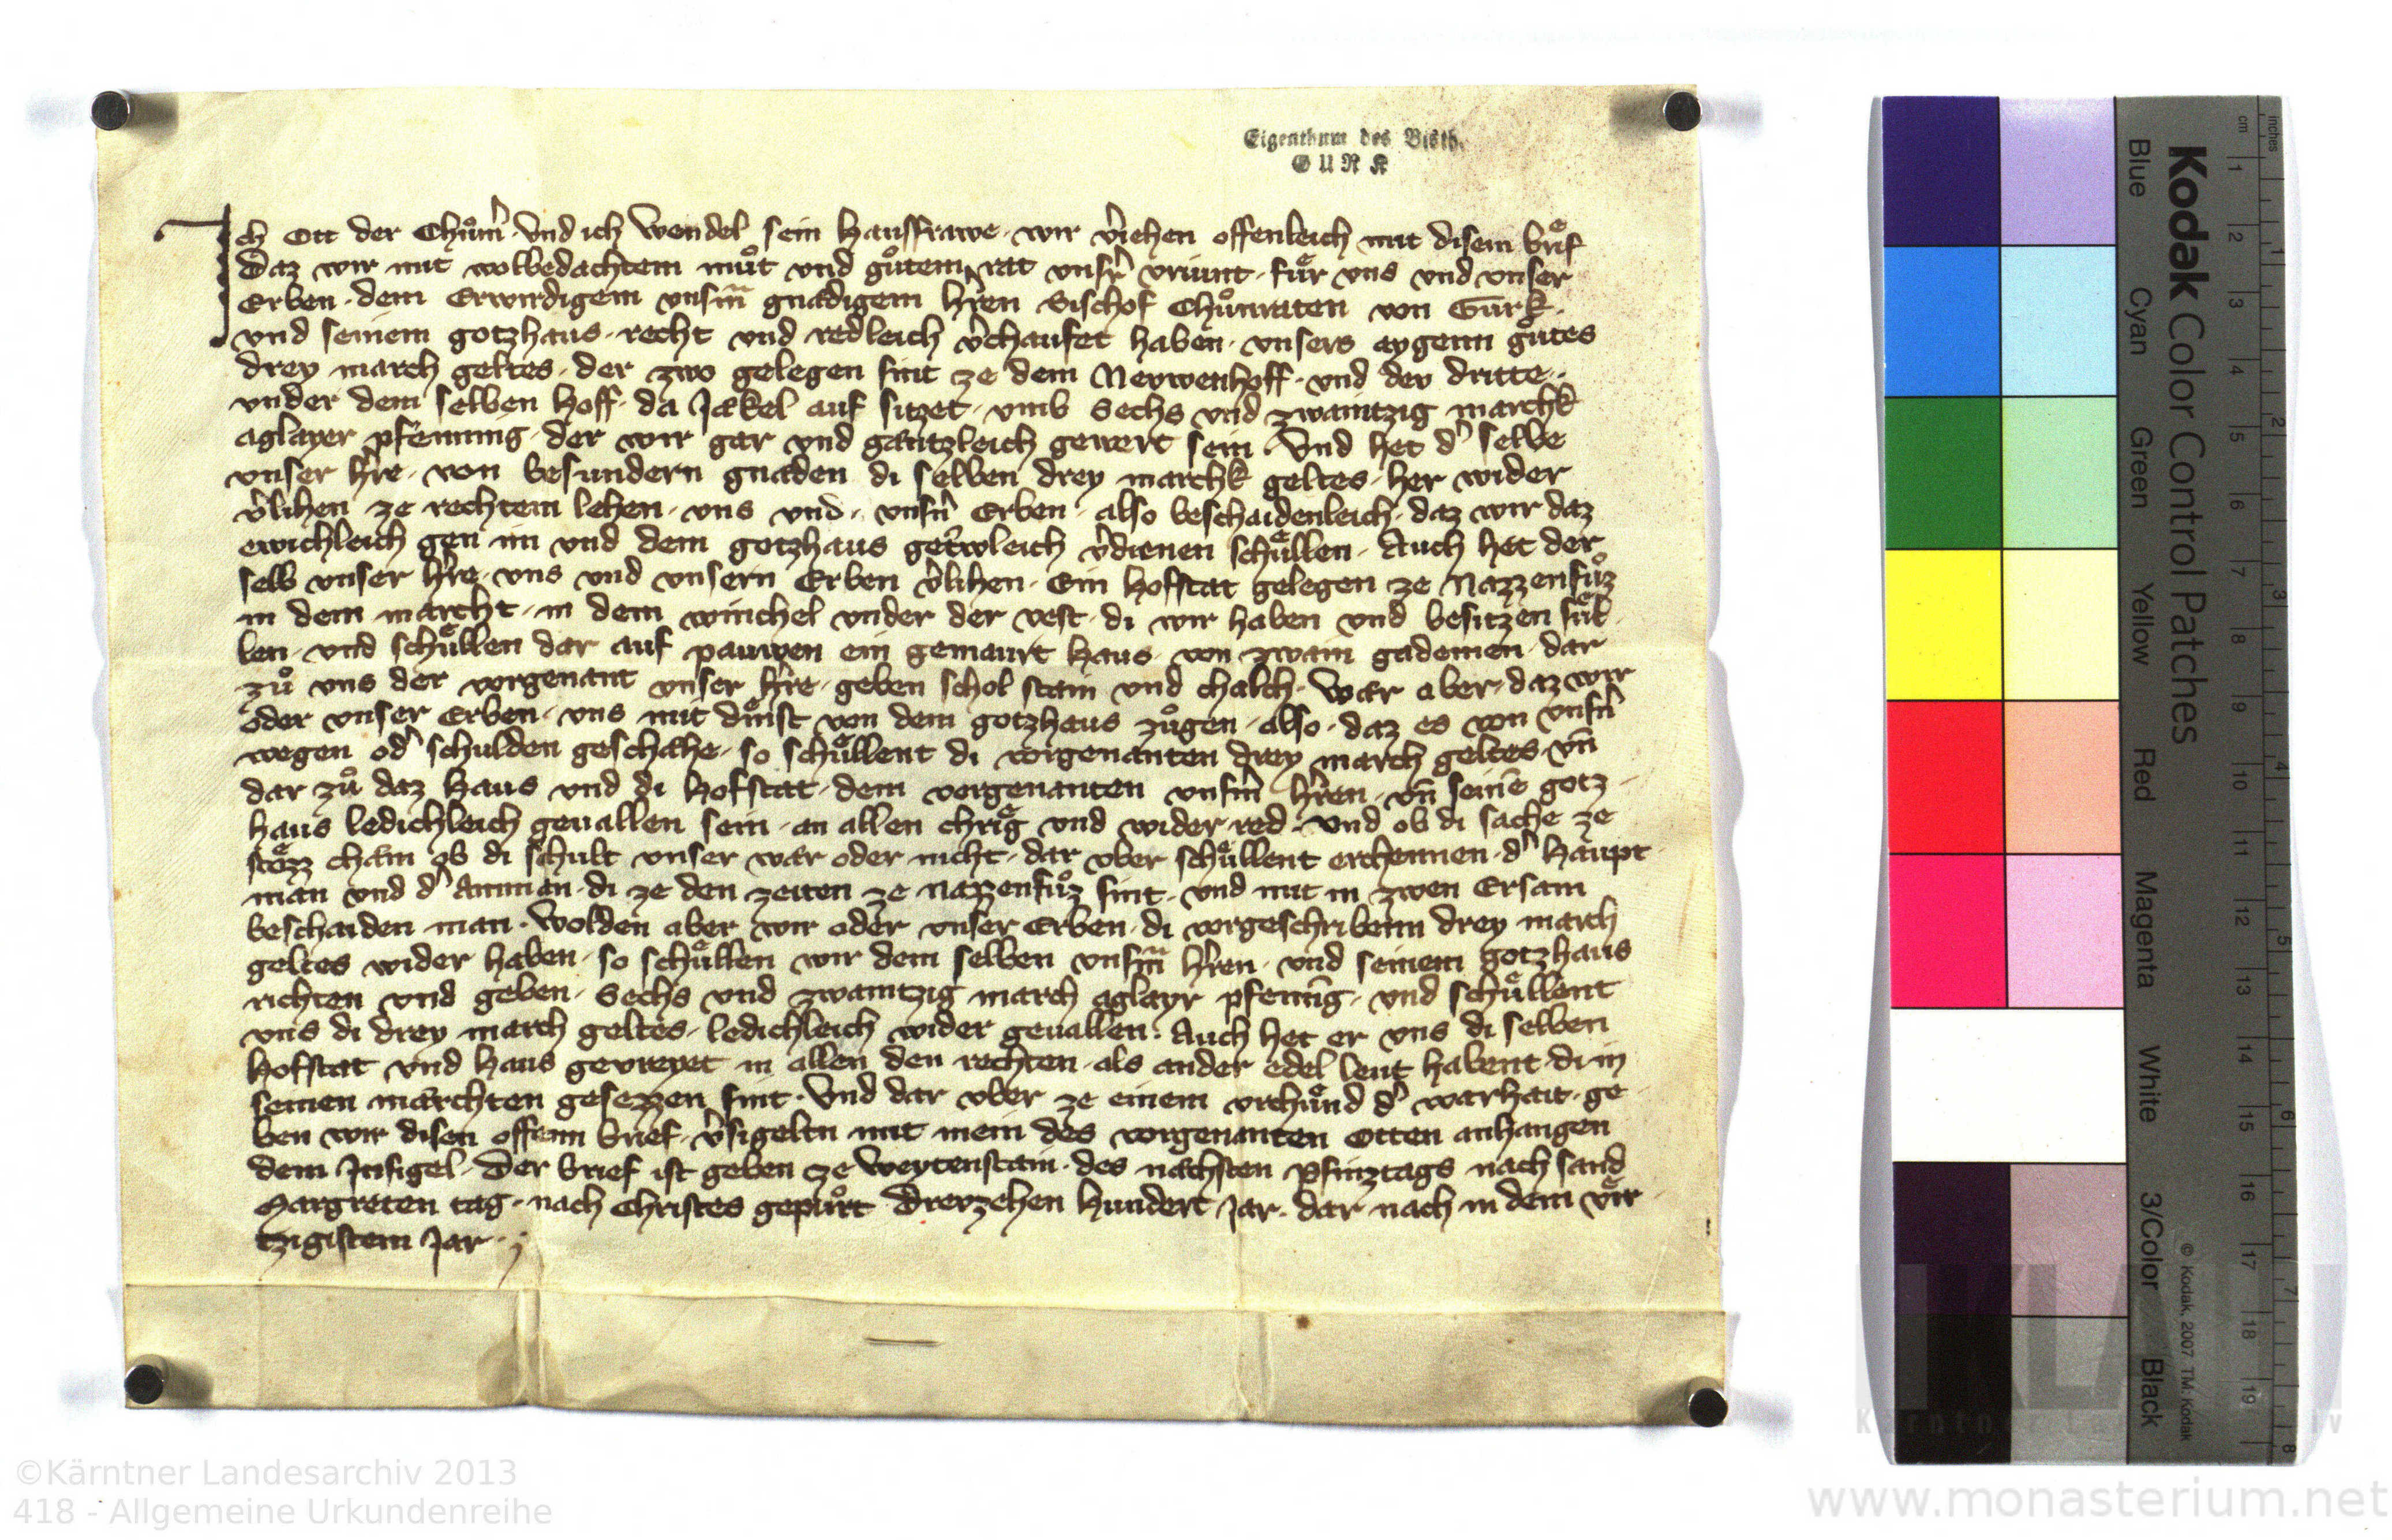 Eigenthum des Bisth.
GURK
Ich Ott der Chůmˀ · vnd ich Wendel sein hausfrawe · wir vˀiehen offenleich mit disem brief
Daz wir mit wolbedachtem můt vnd gůtem rat vnsrˀ vriunt · fuͤr vns vnd vnser
Erben · dem Erwirdigem vnsm̄ gnadigem hˀren Bischof Chůnraten von Gurk ·
vnd seinem gotzhaus · recht vnd redleich vˀchaufet haben · vnsers aygenn gůtes
drey march geltes · der zwo gelegen sint ze dem Neywenhoff · vnd dev dritte ·
vnder dem selben hoff · da Jakel auf sitzet · vmb Sechs vnd zwaintzig marchk
aglayer pfenning · der wir gar vnd gantzleich gewert sein · Vnd het dˀ selbe
vnser hˀre · von besundern gnaden di selben drey marchk geltes · her wider
vˀlihen ze rechtem lehen · vns vnd · vnsnˀ Erben · also beschaidenleich · daz wir daz
ewichleich gen im vnd dem gotzhaus getˀwleich vˀdienen schuͤllen · Auch het der
selb vnser hˀre · vns vnd vnsern Erben vˀlihen · Ein hofstat gelegen ze Nazzenfůz
in dem marcht · in dem winchel vnder der vest · di wir haben vnd besitzen suͤl
len · vnd schuͤllen dar auf pauwen ein gemaurt haus · von zwain gademen · dar
zů vns der vorgenant vnser hˀre · geben schol stain vnd chalch · War aber · daz wir
oder vnser Erben · vns mit dinst von dem gotzhaus zůgen · also · daz es von vnsnˀ
wegen odˀ schulden geschahe · so schuͤllent di vorgenanten drey march geltes · vn̄
dar zů daz haus vnd di hofstat · dem vorgenanten vnsmˀ hˀren · vn̄ seinē gotz
haus ledichleich geuallen sein · an allen chrieg vnd wider red · Vnd ob di sache ze
stoͤzz cham ob di schult vnser war oder nicht · dar vber schuͤllent erchennen · dˀ haupt
man vnd dˀ Amman · di ze den zeiten ze nazzenfůz sint · vnd mit in zwen Ersam
beschaiden man · Wolden aber wir oder vnser Erben · di vorgeschribenn drey march
geltes wider haben · so schuͤllen wir dem selben vnsm̄ hˀren · vnd seinem gotzhaus
richten vnd geben · Sechs vnd zwaintzig march aglayr pfennīg · vnd schuͤllent
vns di drey march geltes · ledichleich wider geuallen · Auch het er vns di selben
hofstat vnd haus gevreyet in allen den rechten · als ander edel leut habent · di in
seinen marchten gesezzen sint · Vnd dar vber ze einem vrchuͤnd dˀ warhait · ge
ben wir disen offenn brief · vˀsigeltn mit mein des vorgenanten Otten anhangen
dem Insigel · Der brief ist geben ze Weytenstain · des nachsten Pfinztags nach sand
Margreten tag · nach Christes gepuͤrt Drewzehen hundert Jar · dar nach in dem vir
tzigistem Jar ·
Kodak Color Control Patches
Blue
Cyan
Green
Yellow
Red
Magenta
White
3/Color
Black
© Kodak, 2007 TM: Kodak
cm 1 2 3 4 5 6 7 8 9 10 11 12 13 14 15 16 17 18 19
inches 1 2 3 4 5 6 7 8
KLA
©Kärntner Landesarchiv 2013
418 - Allgemeine Urkundenreihe
www.monasterium.net